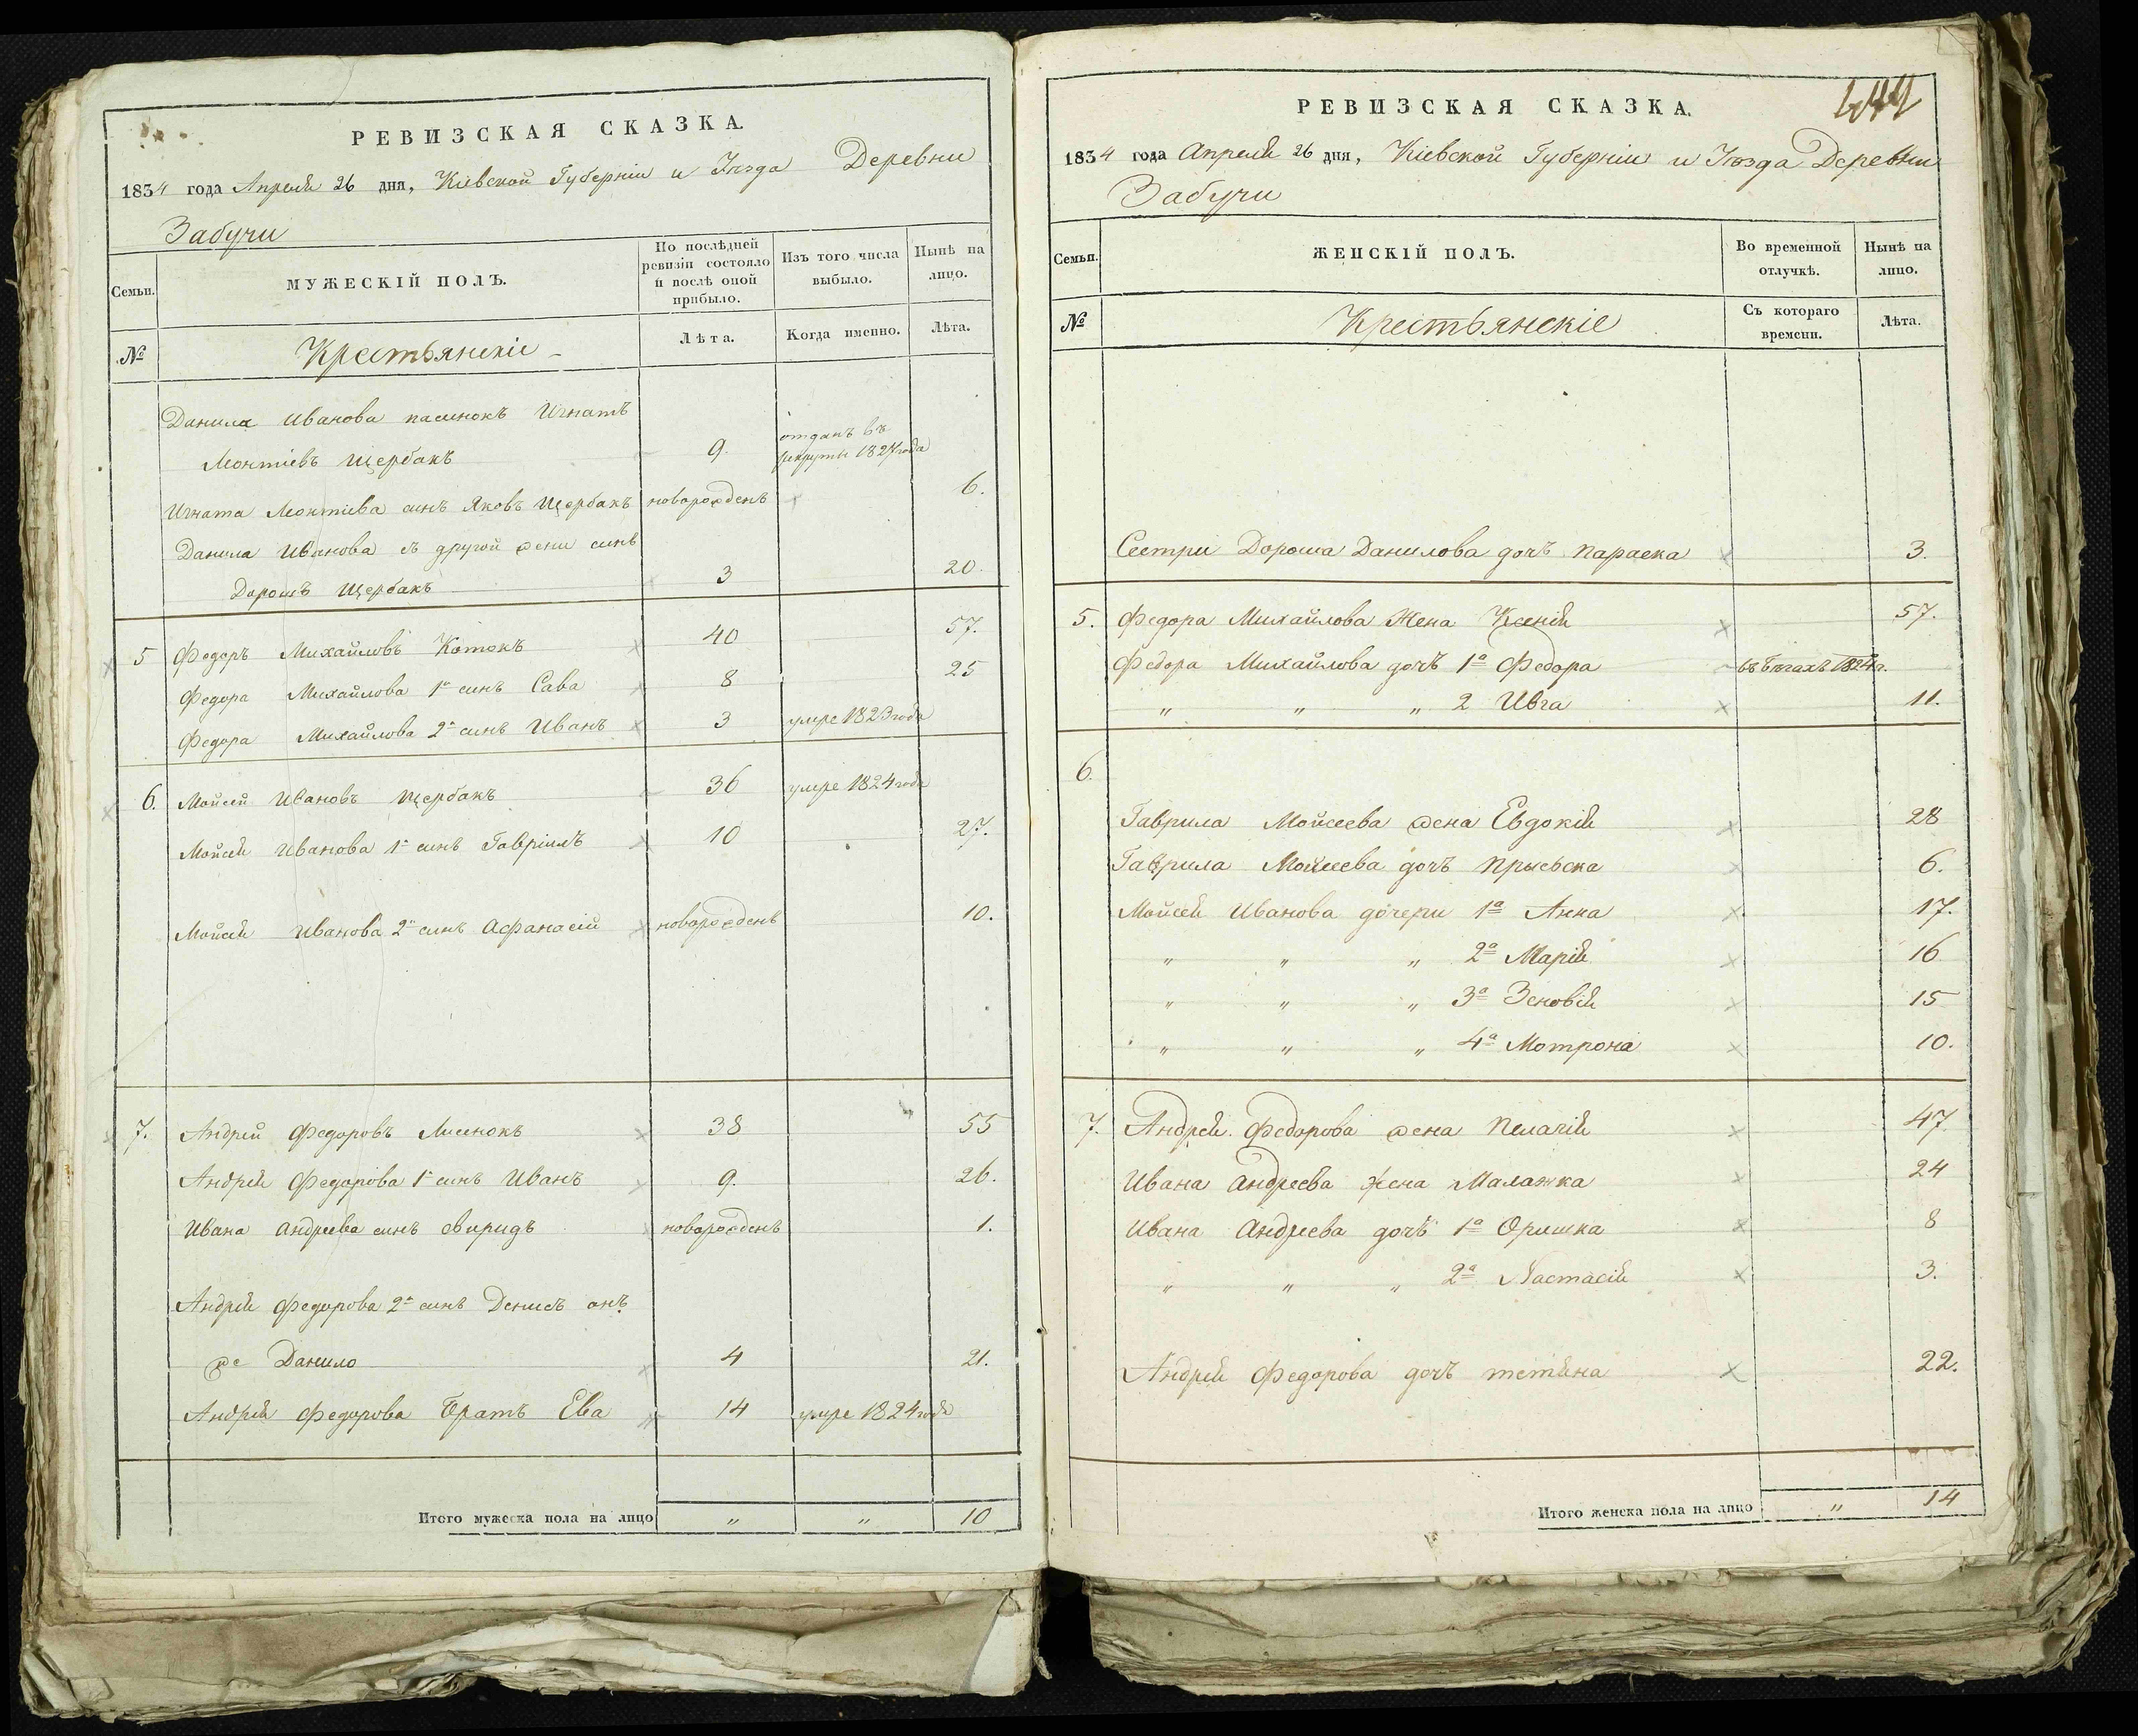 РЕВИЗСКАЯ СКАЗКА.
1834 года Апреля 26 дня, Кіевской Губерніи и Уезда Деревни
Забучи
Семьи.
МУЖЕСКІЙ ПОЛЪ.
По послѣдней ревизіи состояло и послѣ оной прибыло.
Изъ того числа выбыло.
Нынѣ на лицо.
№
Крестьянскіе
Лѣта.
Когда именно.
Лѣта.
Данила Иванова пасинокъ Игнатъ
Леонтіевъ Щербакъ 9. отданъ въ рекруты 1827 года
Игната Леонтіева синъ Яковъ Щербакъ новорожденъ 6.
Данила Иванова съ другой жени синъ
Дорошъ Щербакъ 3 20.
5 Федоръ Михайловъ Котокъ 40 57.
Федора Михайлова 1й синъ Сава 8 25
Федора Михайлова 2й синъ Иванъ 3 умре 1823 года
6. Мойсей Ивановъ Щербакъ 36 умре 1824 года
Мойсея Иванова 1й синъ Гавріилъ 10 27.
Мойсея Иванова 2й синъ Афанасій новорожденъ 10.
7. Андрей Федоровъ Лисенокъ 38 55
Андрея Федорова 1й синъ Иванъ 9. 26.
Ивана Андреева синъ Свиридъ новорожденъ 1.
Андрея Федорова 2й синъ Денисъ онъ
же Данило 4 21.
Андрея Федорова Братъ Ева 14 умре 1824 года
Итого мужеска пола на лицо " " 10
РЕВИЗСКАЯ СКАЗКА.
1834 года Апреля 26 дня, Кіевской Губерніи и Уезда Деревни
Забучи
Семьи.
ЖЕНСКІЙ ПОЛЪ.
Во временной отлучкѣ.
Нынѣ на лицо.
№
Крестьянскіе
Съ котораго времени.
Лѣта.
Сестри Дороша Данилова дочъ Параска 3.
5. Федора Михайлова Жена Ксенія 57.
Федора Михайлова дочъ 1а Федора въ бегахъ 1824 г.
" " " 2 Ивга 11.
6.
Гаврила Мойсеева жена Евдокія 28
Гаврила Мойсеева дочъ Прыська 6.
Мойсея Иванова дочери 1а Анна 17.
" " " 2а Марія 16
" " " 3а Зеновія 15
" " " 4а Мотрона 10.
7. Андрея Федорова жена Пелагія 47
Ивана Андреева жена Малашка 24
Ивана Андреева дочъ 1а Оришка 8
" " " 2а Настасія 3.
Андрея Федорова дочъ Тетяна 22.
Итого женска пола на лицо " 14